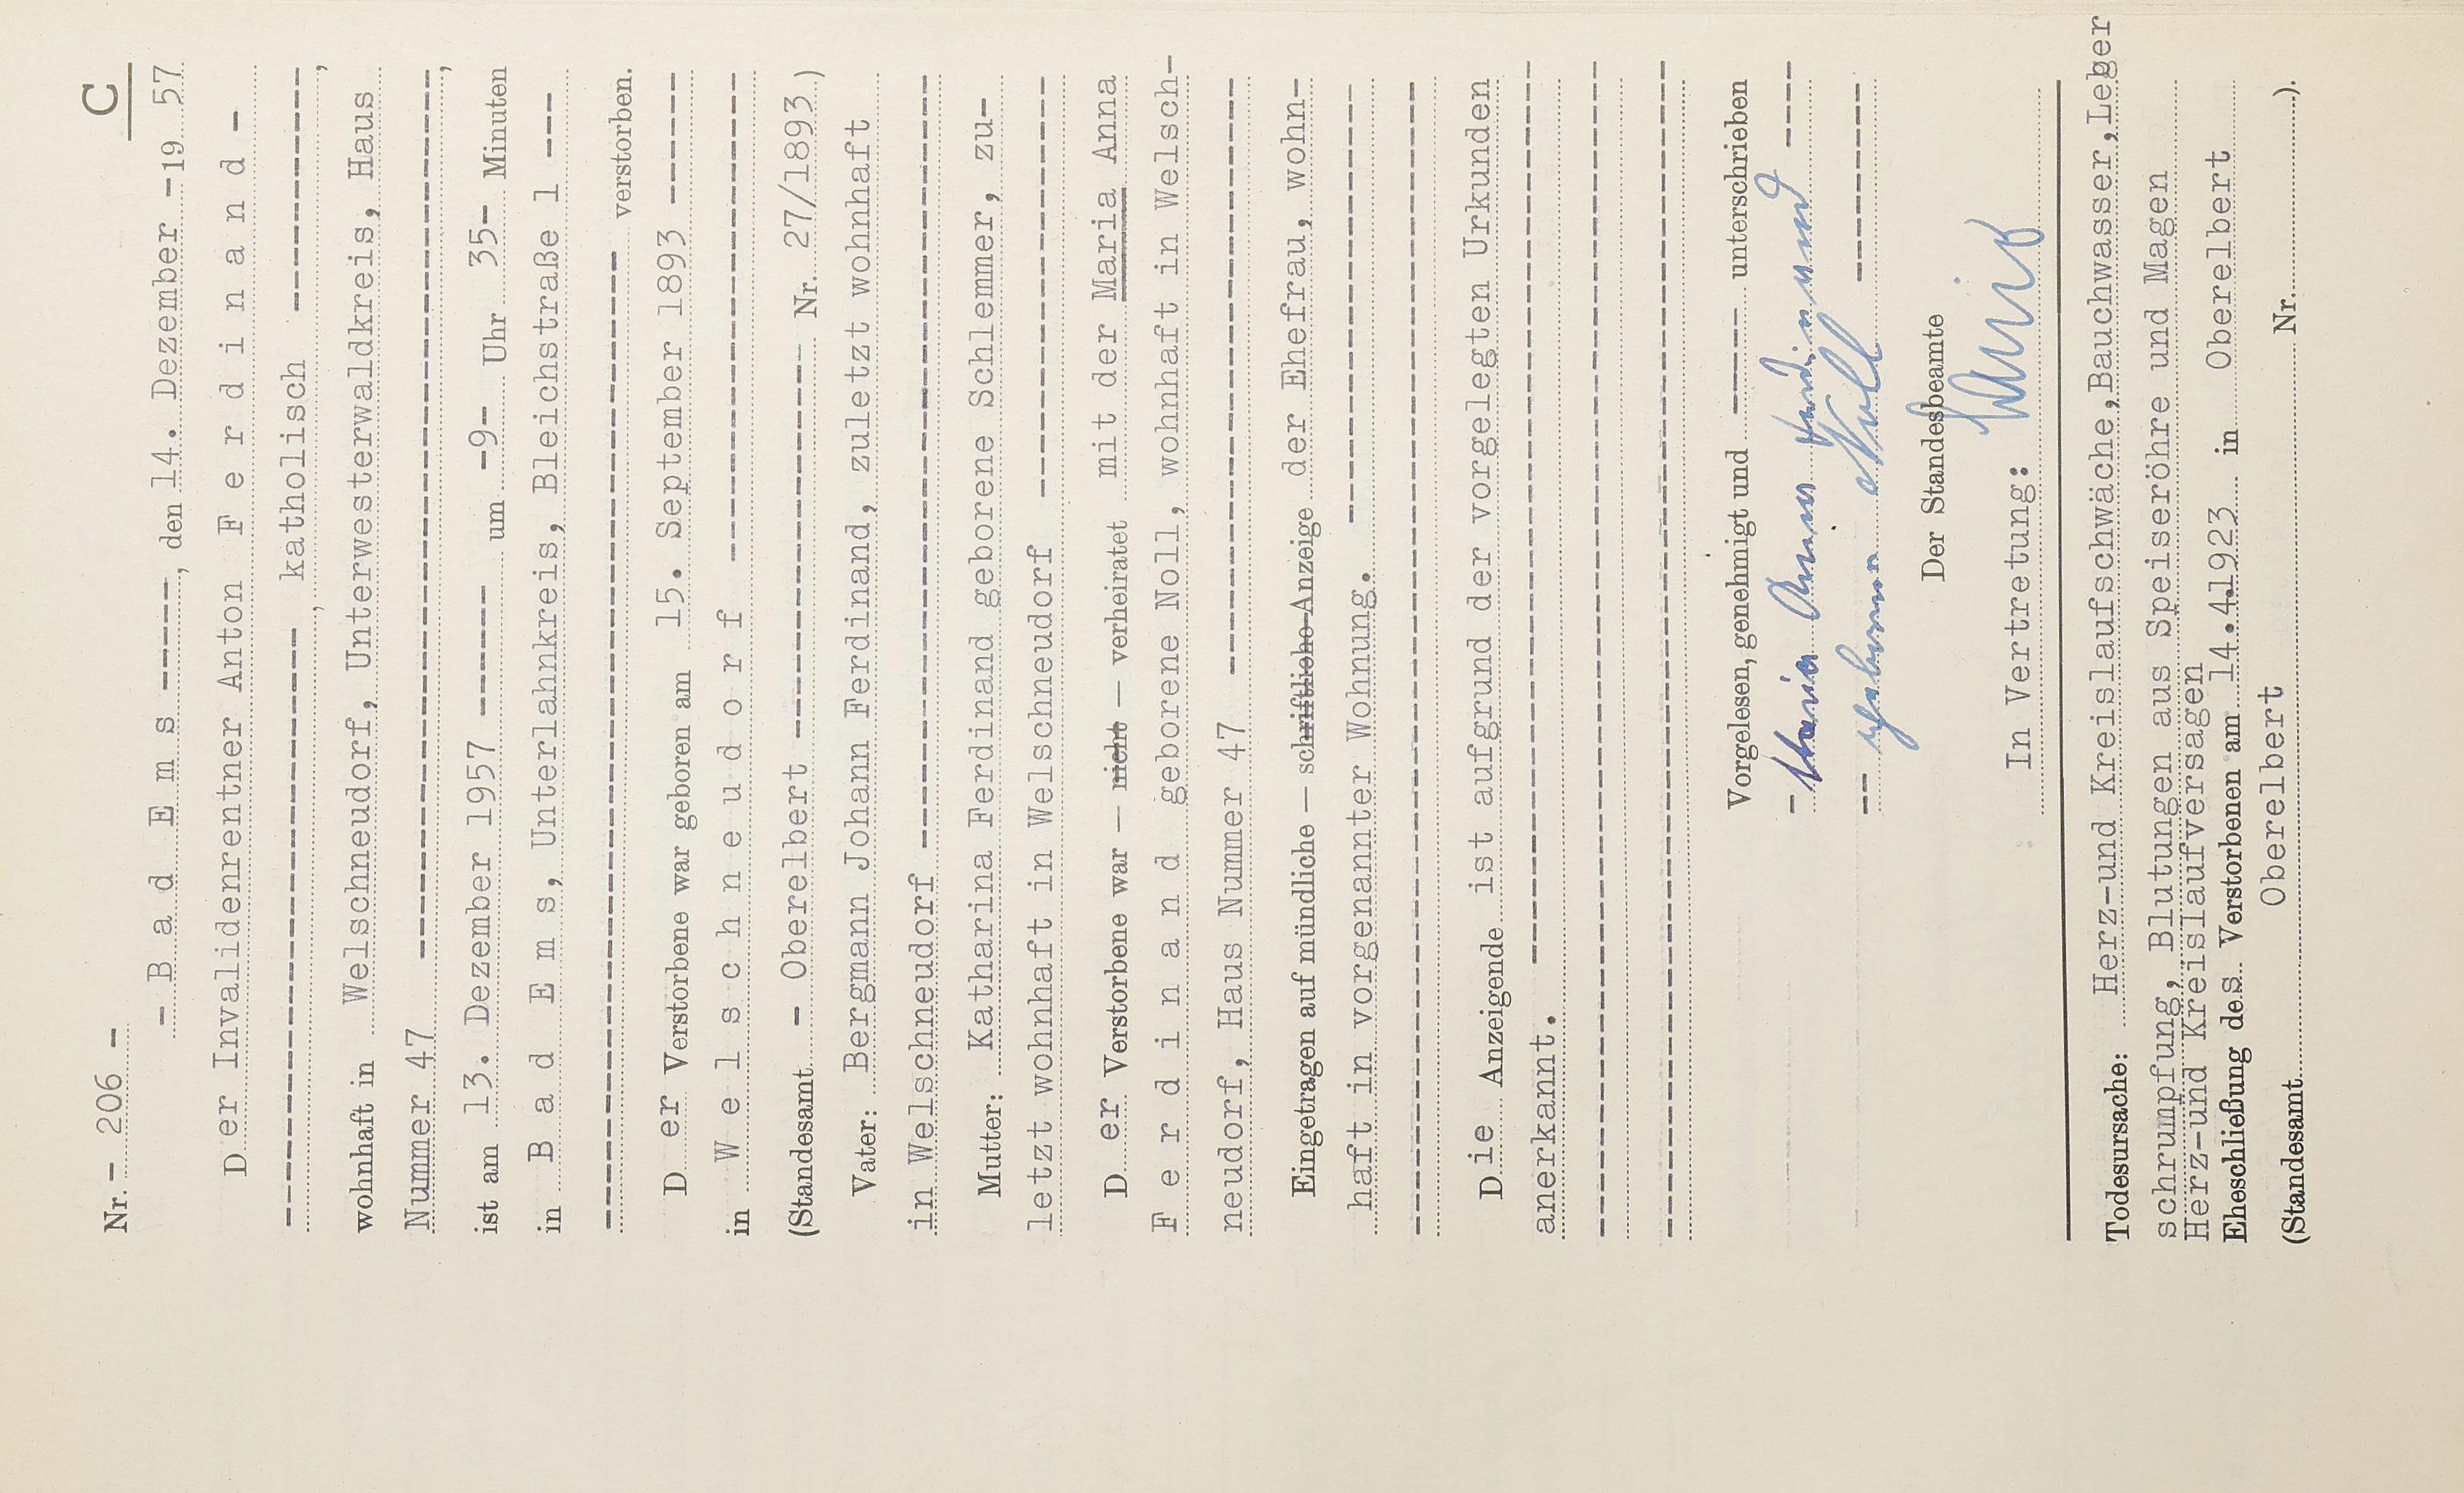 C
Nr. - 206 -
- B a d  E m s -----, den 14. Dezember -19 57
D er Invalidenrentner Anton F e r d i n a n d -
--------------------------, katholisch -----------,
wohnhaft in Welschneudorf, Unterwesterwaldkreis, Haus
Nummer 47 ---------------------------------------,
ist am 13. Dezember 1957 ------ um -9- Uhr 35- Minuten
in B a d  E m s, Unterlahnkreis, Bleichstraße 1 ---
------------------------------------------ verstorben.
D er Verstorbene war geboren am 15. September 1893 ------
in W e l s c h n e u d o r f ----------------------
(Standesamt - Oberelbert ----------------- Nr. 27/1893.)
Vater: Bergmann Johann Ferdinand, zuletzt wohnhaft
in Welschneudorf ----------------------------------
Mutter: Katharina Ferdinand geborene Schlemmer, zu-
letzt wohnhaft in Welschneudorf -------------------
D er Verstorbene war — nicht — verheiratet mit der Maria Anna
F e r d i n a n d geborene Noll, wohnhaft in Welsch-
neudorf, Haus Nummer 47 ---------------------------
Eingetragen auf mündliche — schriftliche Anzeige der Ehefrau, wohn-
haft in vorgenannter Wohnung. --------------------
---------------------------------------------------
D ie Anzeigende ist aufgrund der vorgelegten Urkunden
anerkannt. ----------------------------------------
---------------------------------------------------
---------------------------------------------------
Vorgelesen, genehmigt und ----- unterschrieben
- Maria Anna Ferdinand ----
-- geborene Noll ---------
Der Standesbeamte
In Vertretung:
Todesursache: Herz-und Kreislaufschwäche,Bauchwasser,Leber
schrumpfung, Blutungen aus Speiseröhre und Magen
Herz-und Kreislaufversagen
Eheschließung des Verstorbenen am 14.4.1923 in Oberelbert
(Standesamt Oberelbert Nr. ).